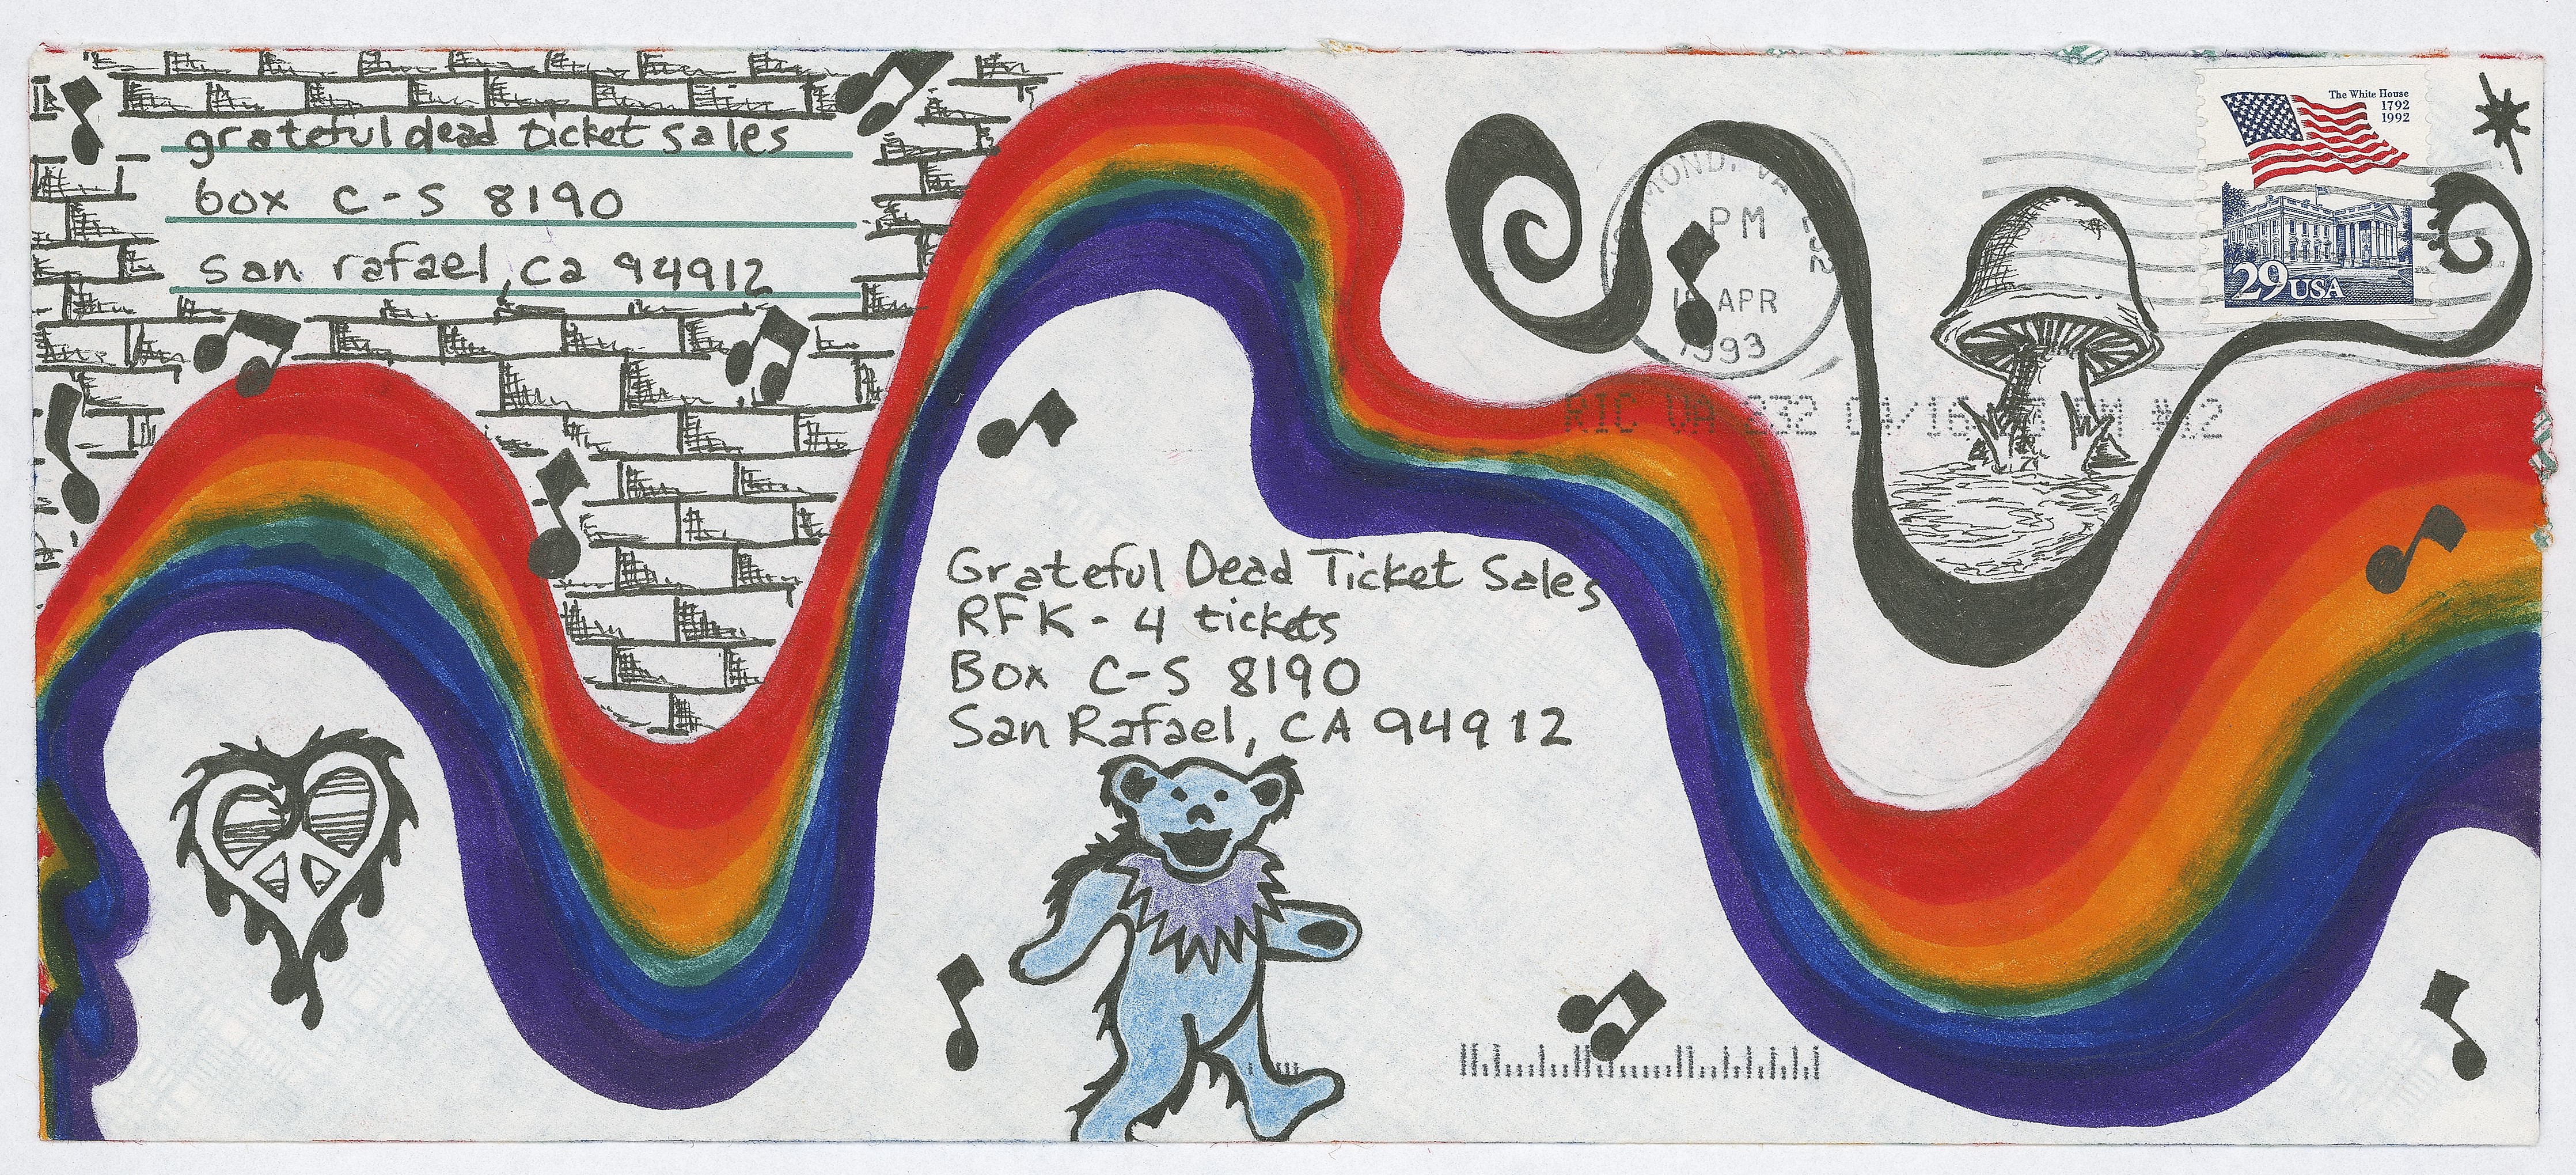 grateful dead ticket sales
box C-S 8190
san rafael, ca 94912
The White House
1792
1992
29 USA
MOND, VA
PM
APR
1993
RIC VA 232 04/16 PM #12
Grateful Dead Ticket Sales
RFK - 4 tickets
Box C-S 8190
San Rafael, CA 94912